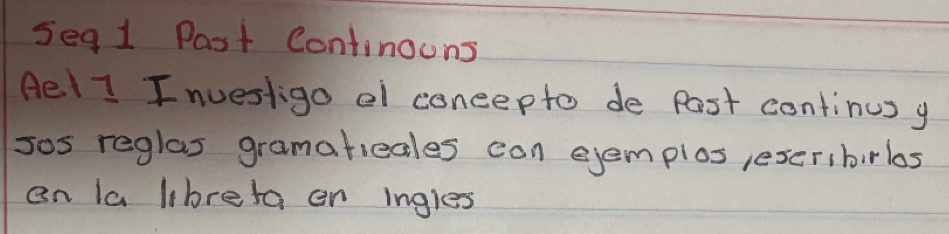 Seq 1 Past Continouns
Ael 1 Investigo el concepto de Past continus y
sos reglas gramaticales con ejemplos, escribirlos
en la libreta en Ingles